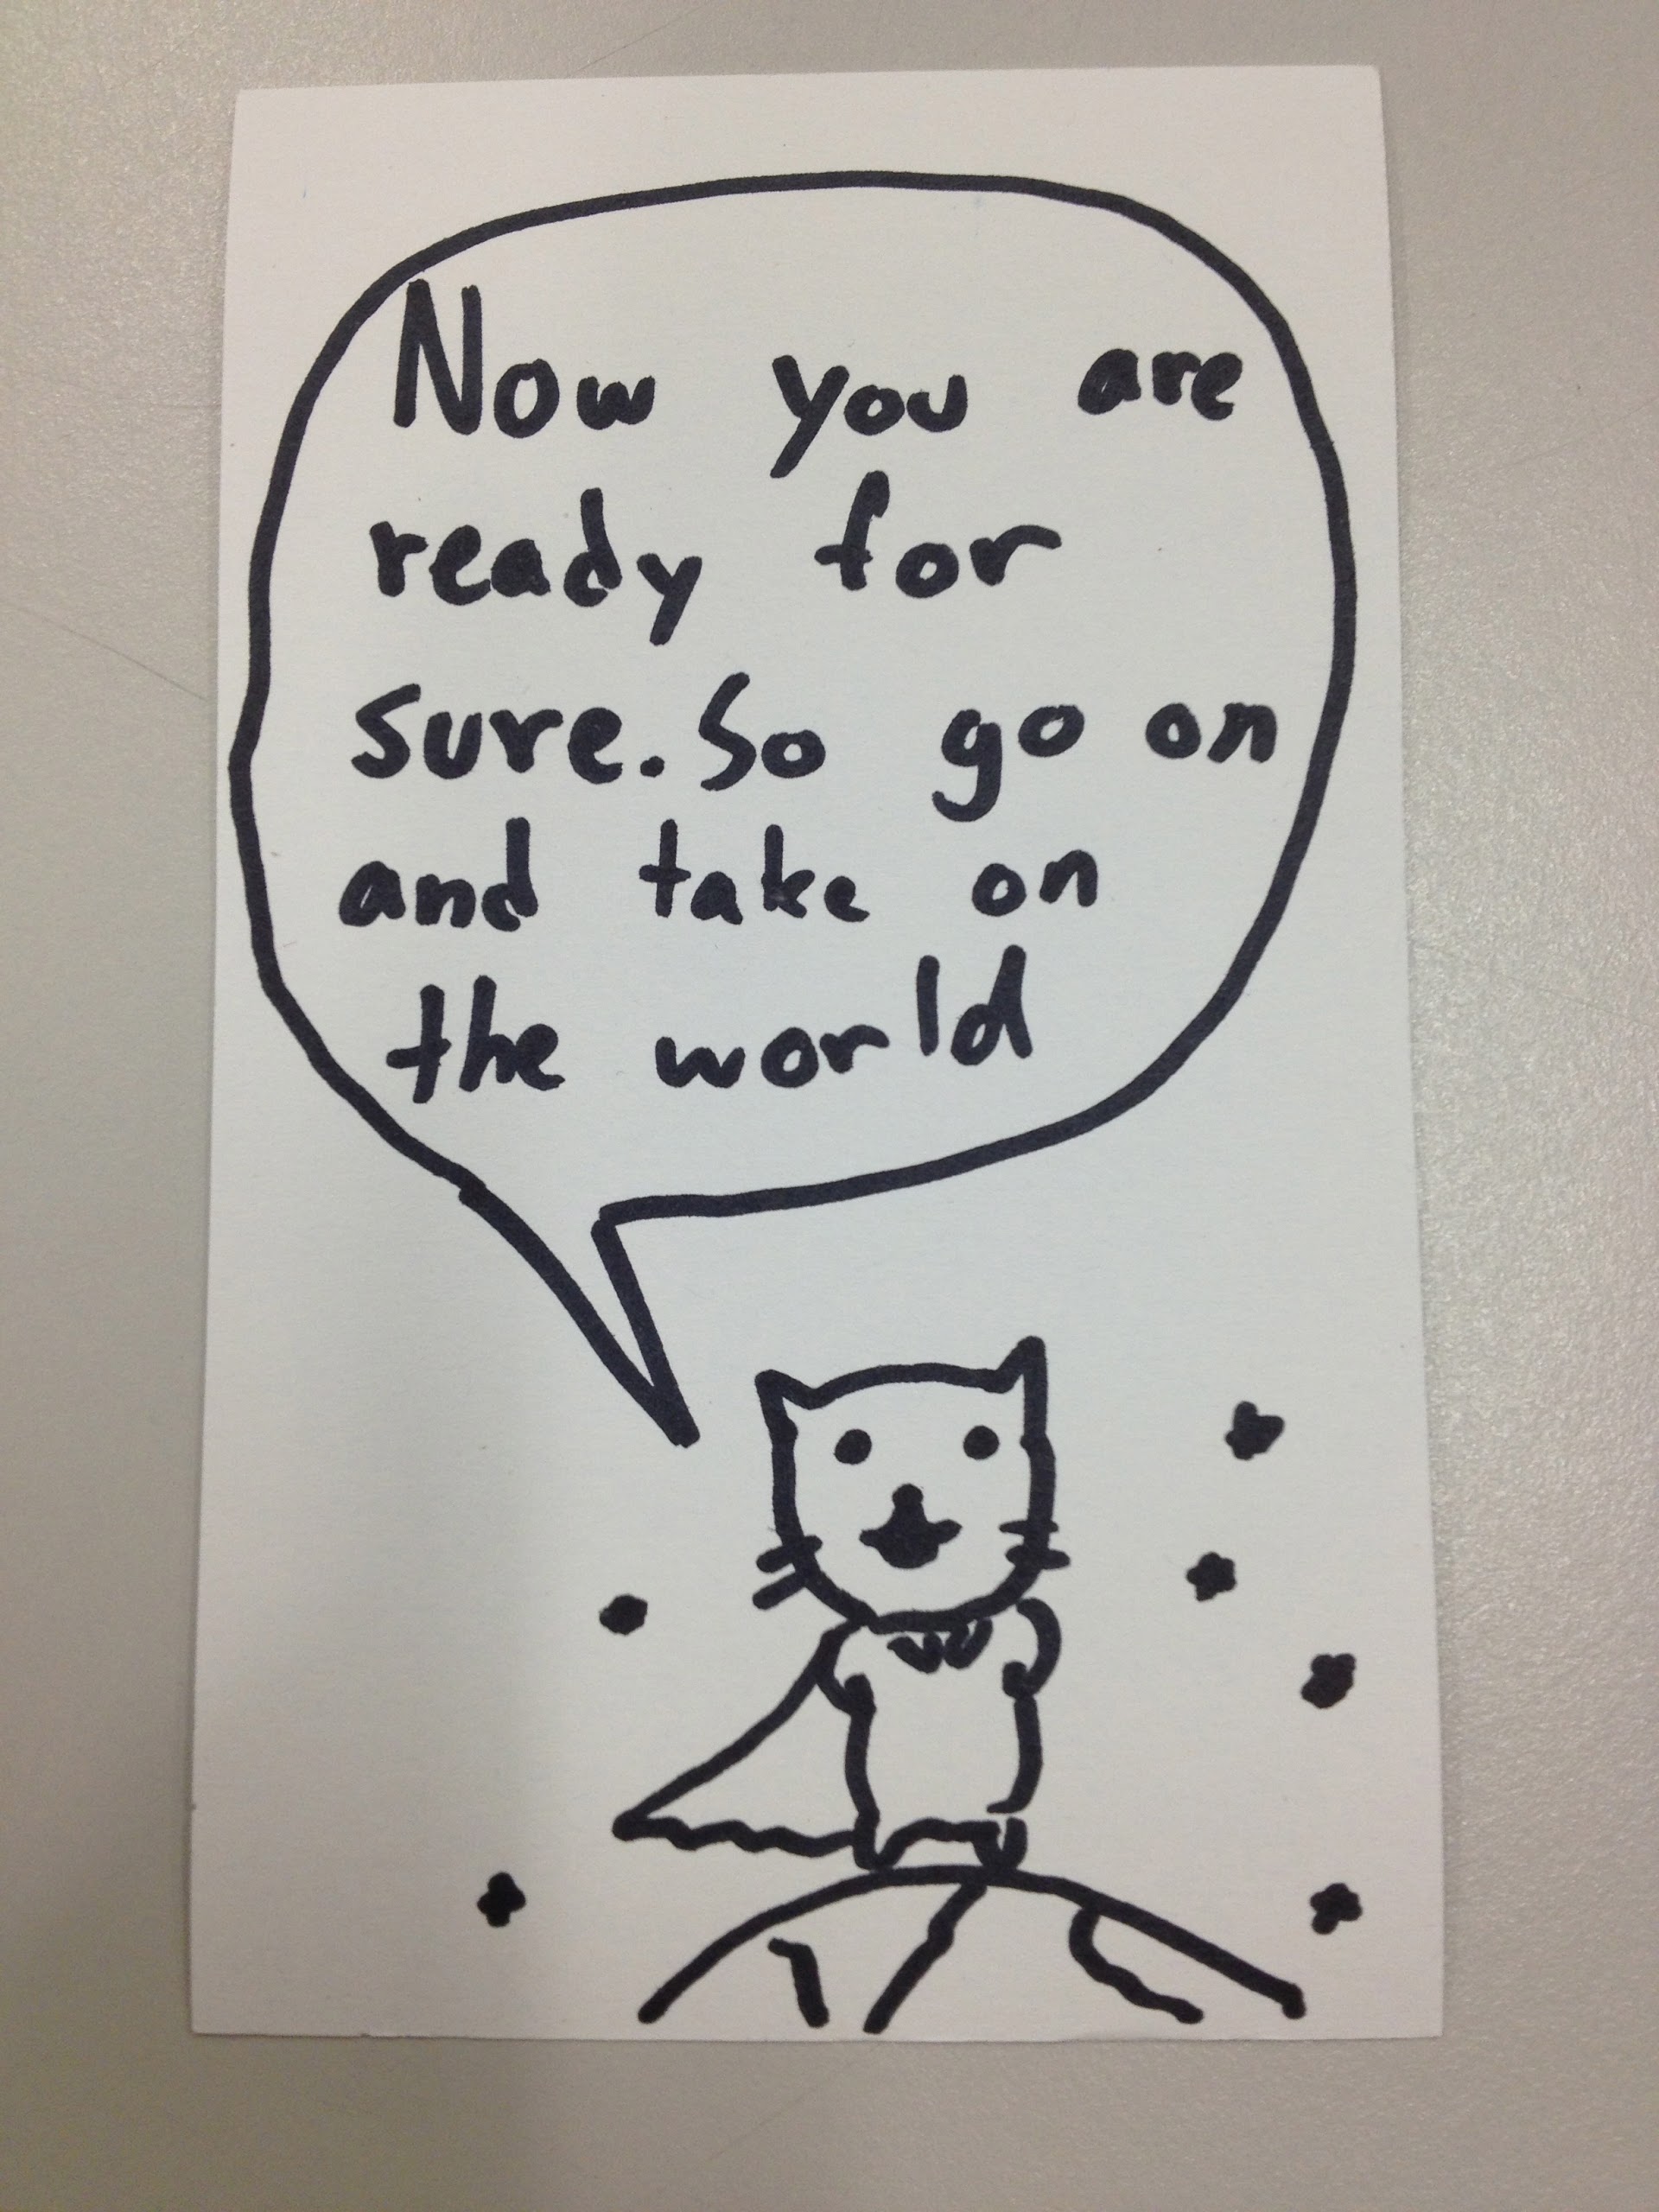 Now you are
ready for
sure. So go on
and take on
the world